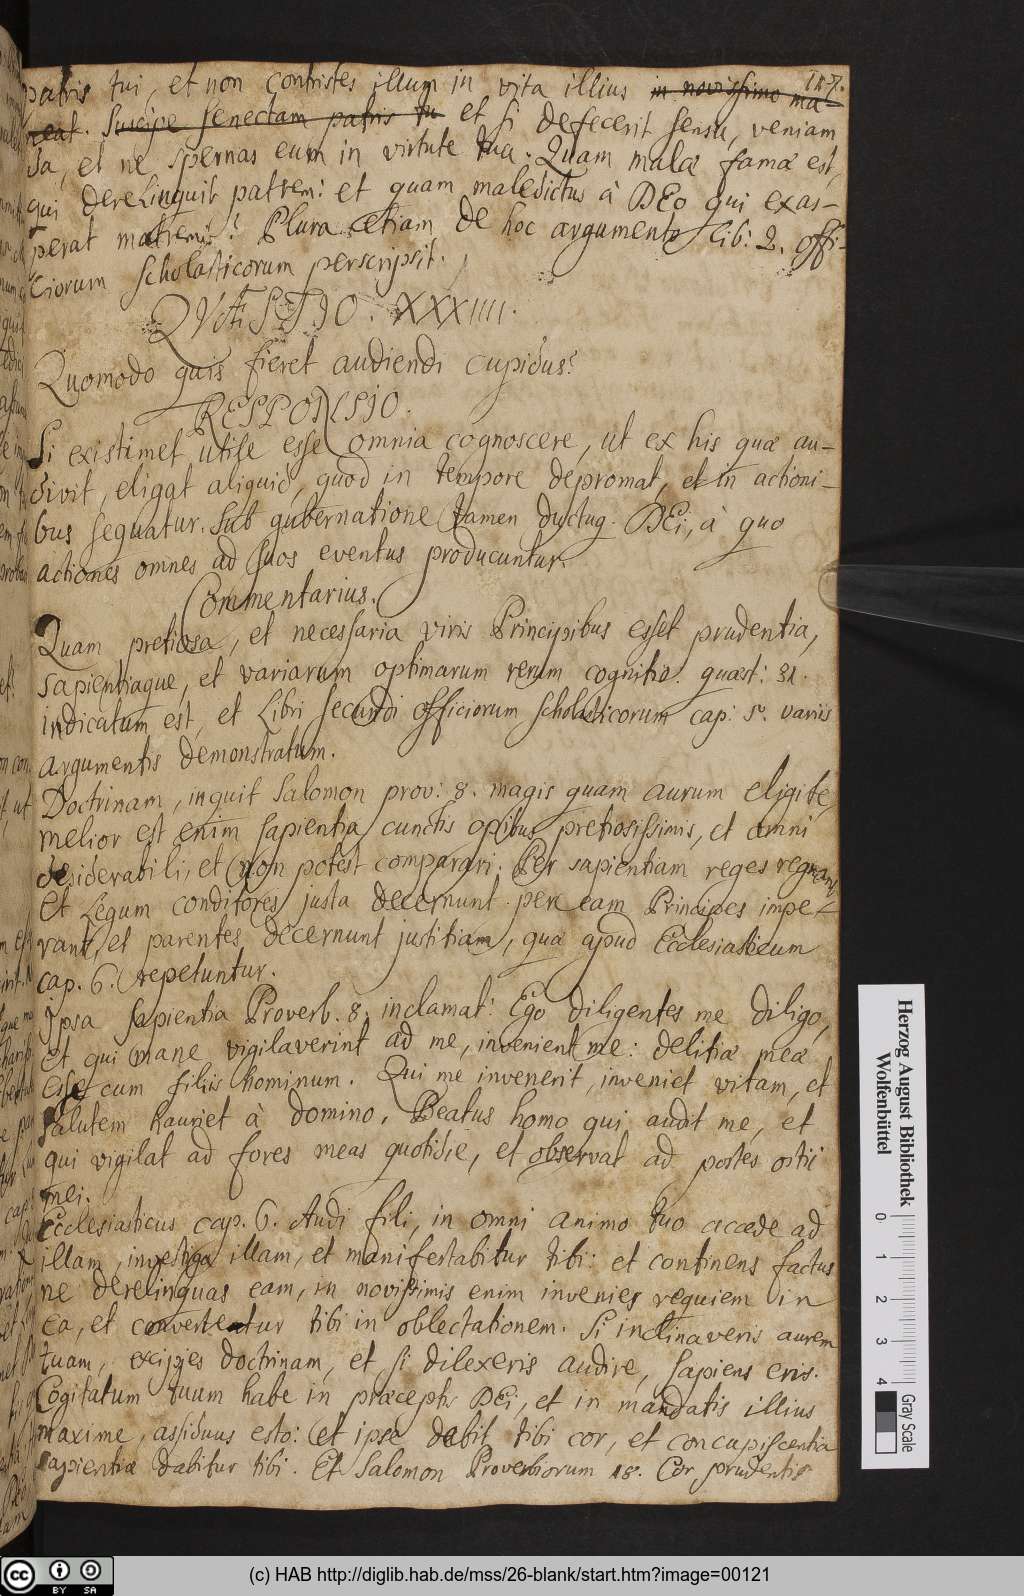 117.
patris tui, et non contristes illum in vita illius in novissimo ma-
neat. Suscipe senectam patris tu et si defecerit sensu, veniam
da, et ne spernas eum in virtute tua. Quam malæ famæ est,
qui derelinquit patrem: et quam maledictus à DEo qui exas-
perat matrem? Plura etiam de hoc argumento lib: 2. offi-
ciorum scholasticorum perscripsit.
QVÆSTIO. XXXIIII.
Quomodo quis fieret audiendi cupidus?
RESPONSIO.
Si existimet utile esse omnia cognoscere, ut ex his quæ au-
divit, eligat aliquid, quod in tempore depromat, et in actioni-
bus sequatur. Sub gubernatione tamen ductuq. DEi, à quo
actiones omnes ad suos eventus producuntur.
Commentarius.
Quam pretiosa, et necessaria viris Principibus esset prudentia,
sapientiaque, et variarum optimarum rerum cognitio. quæst: 31.
indicatum est, et Libri secundi officiorum scholasticorum cap: 5. variis
argumentis demonstratum.
Doctrinam, inquit Salomon prov: 8. magis quam aurum eligite,
melior est enim sapientia cunctis opibus pretiosissimis, et omni
desiderabili, et non potest comparari. Per sapientiam reges regnant,
et Legum conditores justa decernunt per eam Principes impe-
rant, et parentes decernunt justitiam, quæ apud Ecclesiasticum
cap. 6. repetuntur.
Ipsa sapientia Proverb. 8. inclamat: Ego diligentes me diligo,
et qui mane vigilaverint ad me, invenient me: delitiæ meæ
esse cum filiis hominum. Qui me invenerit, inveniet vitam, et
salutem hauriet à domino. Beatus homo qui audit me, et
qui vigilat ad fores meas quotidie, et observat ad postes ostii
mei.
Ecclesiasticus cap. 6. Audi fili, in omni animo tuo accede ad
illam, investiga illam, et manifestabitur tibi: et continens factus
ne derelinquas eam, in novissimis enim invenies requiem in
ea, et convertetur tibi in oblectationem. Si inclinaveris aurem
tuam, excipies doctrinam, et si dilexeris audire, sapiens eris.
Cogitatum tuum habe in præceptis DEi, et in mandatis illius
maxime, assiduus esto: et ipse dabit tibi cor, et concupiscentia
sapientiæ dabitur tibi. Et Salomon Proverbiorum 18. Cor prudentis
Herzog August Bibliothek
Wolfenbüttel
0 1 2 3 4
Gray Scale
CC BY SA
(c) HAB http://diglib.hab.de/mss/26-blank/start.htm?image=00121